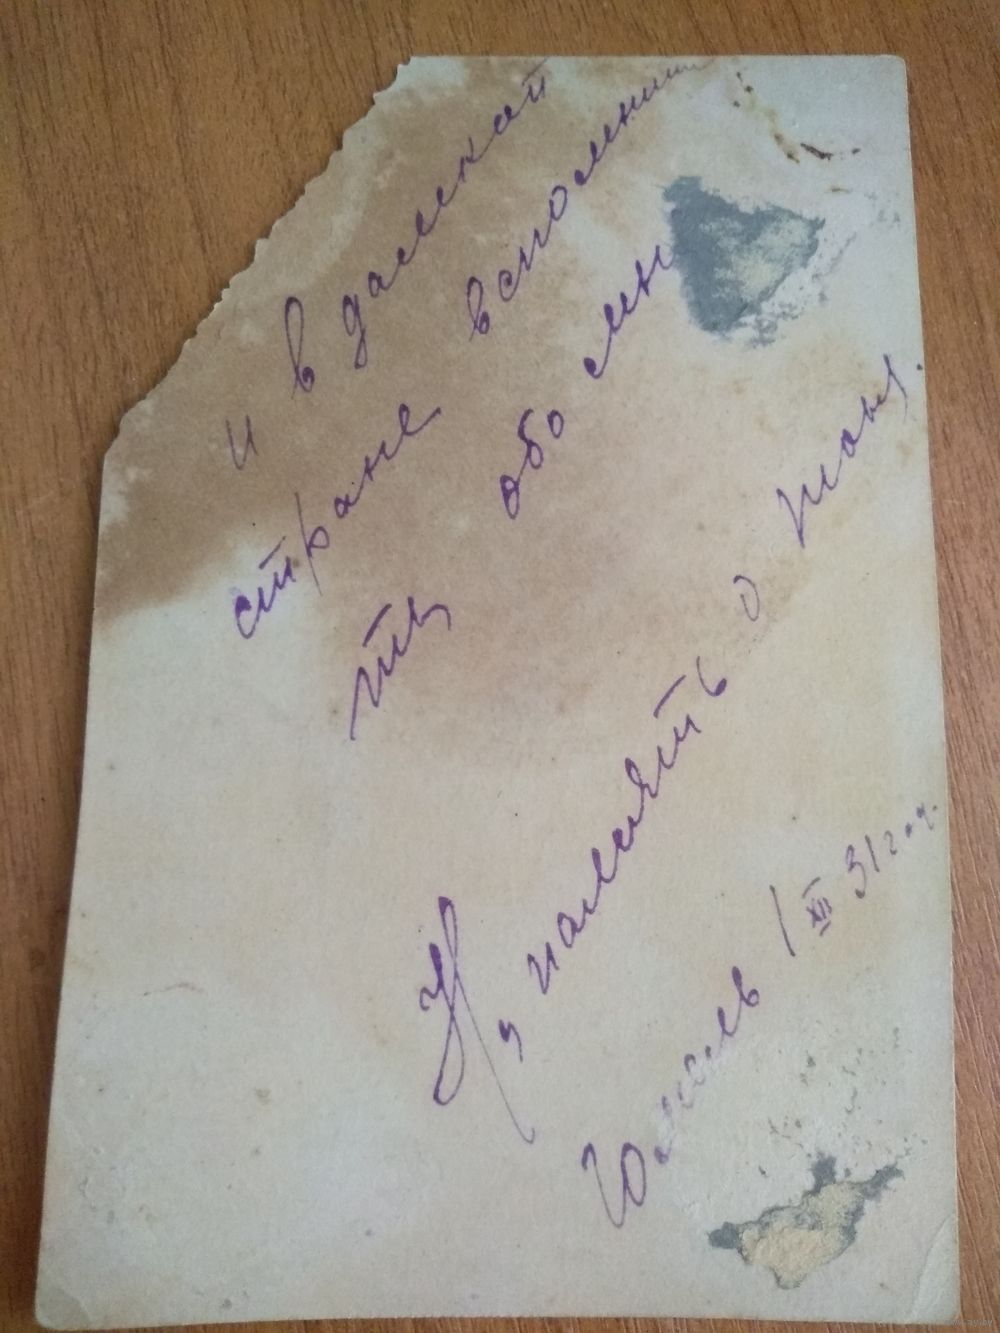 и в далекой
стране вспомниш
ты обо мн
На память о
Гомель 1 XII 31 год.